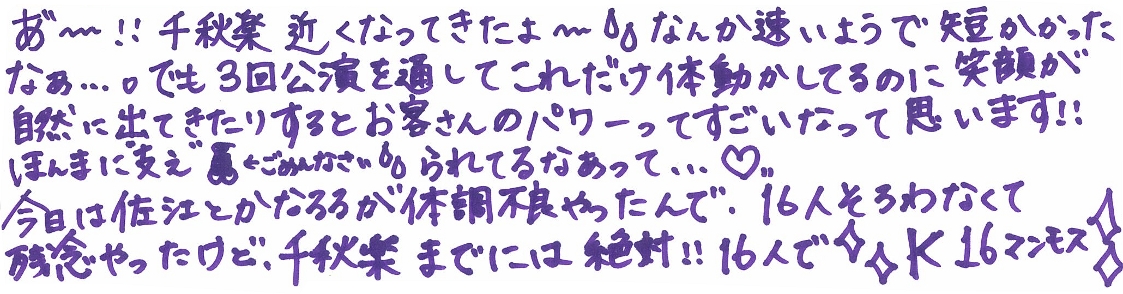 あ゛〜〜!! 千秋楽近くなってきたよ〜なんか速いようで短かかった
なぁ…。でも3回公演を通してこれだけ体動かしてるのに笑顔が
自然に出てきたりするとお客さんのパワーってすごいなって思います!!
ほんまに支え←ごめんなさいられてるなあって…♡
今日は佐江とかなるるが体調不良やったんで、16人そろわなくて
残念やったけど、千秋楽までには絶対!!16人でK16マンモス